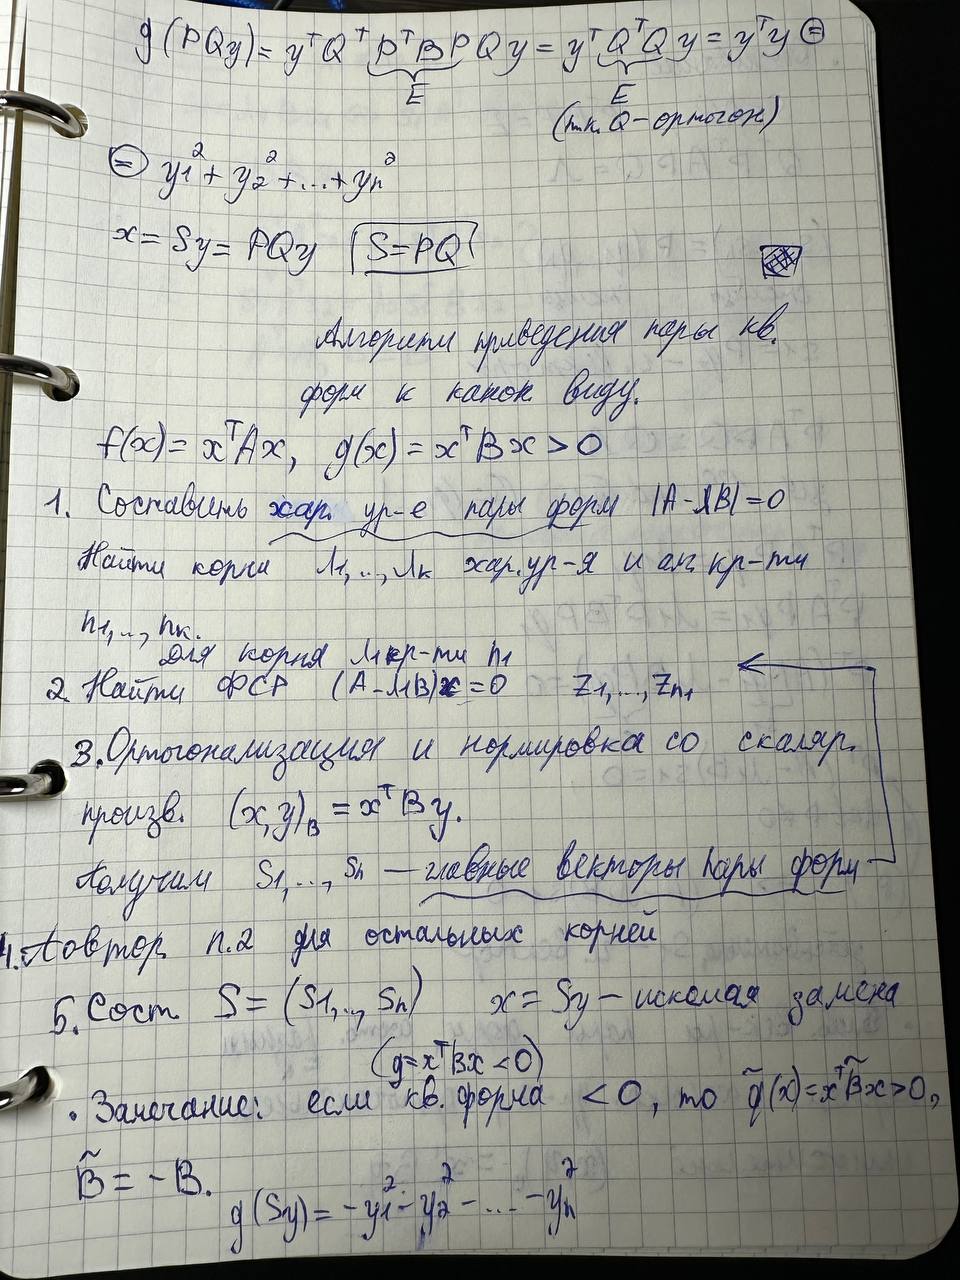 g(PQy) = yᵀQᵀPᵀBPQy = yᵀQᵀQy = yᵀy ⊜
E E
(т.к. Q-ортогон)
⊜ y₁² + y₂² + ... + yₙ²
x = Sy = PQy S=PQ
Алгоритм приведения пары кв.
форм к канон виду.
f(x) = xᵀAx, g(x) = xᵀBx > 0
1. Составить хар. ур-е пары форм |A-λB|=0
Найти корни λ₁,..,λₖ хар.ур-я и алг. кр-ти
n₁,.., nₖ.
для корня λ₁ кр-ти n₁
2. Найти ФСР (A-λ₁B)x=0 z₁,...,zₙ₁
3. Ортогонализация и нормировка со скаляр.
произв. (x,y)_B = xᵀBy.
Получим s₁,..., sₙ — главные векторы пары форм
4. Повтор п.2 для остальных корней
5. Сост. S = (s₁,.., sₙ) x = Sy - искомая замена
(g=xᵀBx < 0)
• Замечание: если кв. форма < 0, то g̃(x) = xᵀB̃x > 0,
B̃ = -B.
g(Sy) = -y₁² - y₂² - ... - yₙ²